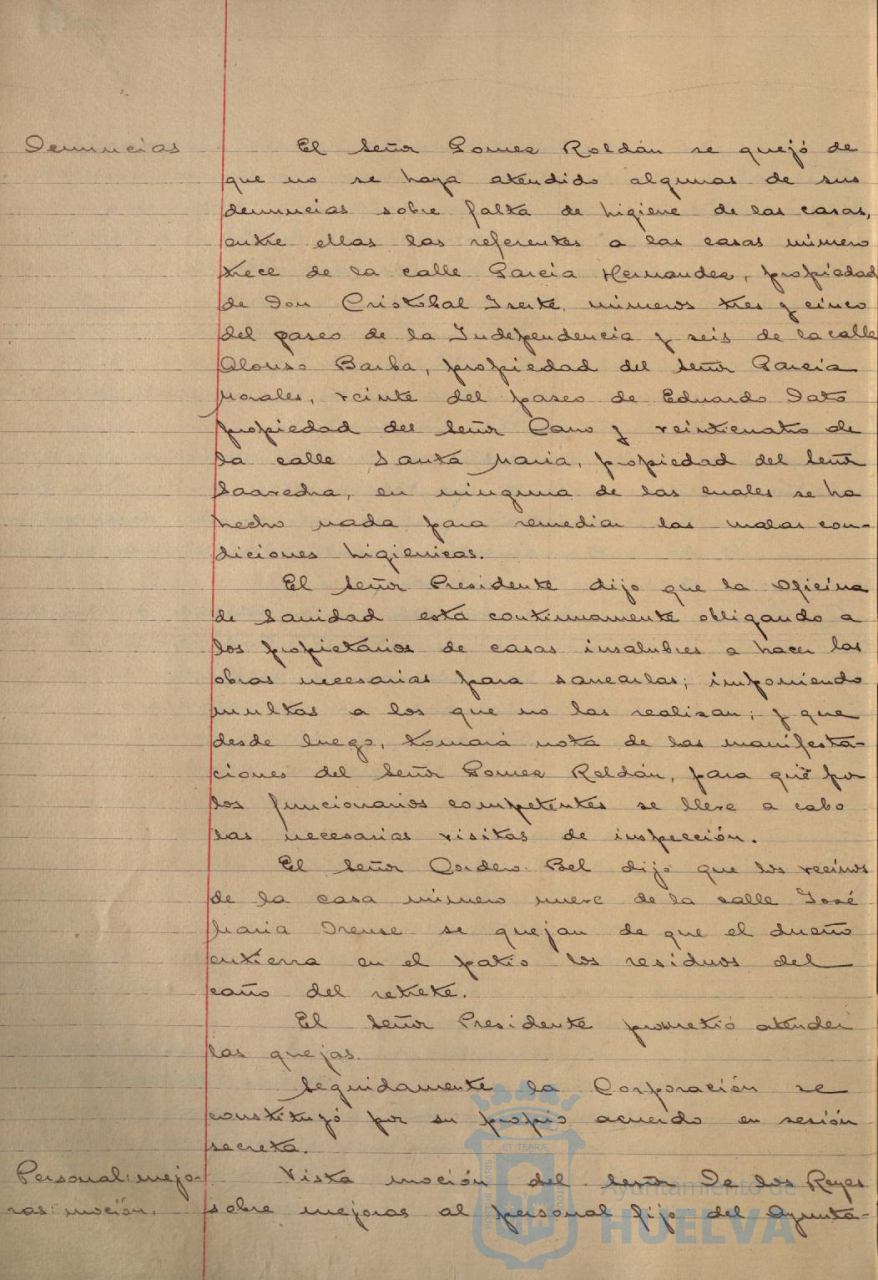 Denuncias
El Señor Gomez Roldán se quejó de
que no se haya atendido algunas de sus
denuncias sobre falta de higiene de las casas,
entre ellas las referentes a las casas número
trece de la calle Garcia Hernandez, propiedad
de Don Cristobal números tres y cinco
del paseo de la Independencia y seis de la calle
Alonso Barba, propiedad del Señor Garcia
Morales, veinte del paseo de Eduardo Dato
propiedad del Señor Cano y veinticuatro de
la calle Santa Maria, propiedad del Señor
Saavedra, en ninguna de las cuales se ha
hecho nada para remediar las malas con-
diciones higienicas.
El Señor Presidente dijo que la Oficina
de Sanidad está continuamente obligando a
los propietarios de casas insalubres a hacer las
obras necesarias para sanearlas; imponiendo
multas a los que no las realizan; y que
desde luego, tomará nota de las manifesta-
ciones del Señor Gomez Roldán, para que por
los funcionarios competentes se lleve a cabo
las necesarias visitas de inspección.
El Señor Cordero Bel dijo que los vecinos
de la casa número nueve de la calle José
Maria Orense se quejan de que el dueño
entierra en el patio los residuos del
caño del retrete.
El Señor Presidente prometió atender
las quejas.
Seguidamente la Corporación se
constituyó por su propio acuerdo en sesión
secreta.
Personal: mejo-
ras: moción.
Vista moción del Señor De los Reyes
sobre mejoras al personal fijo del Ayunta-
Ayuntamiento de
HUELVA